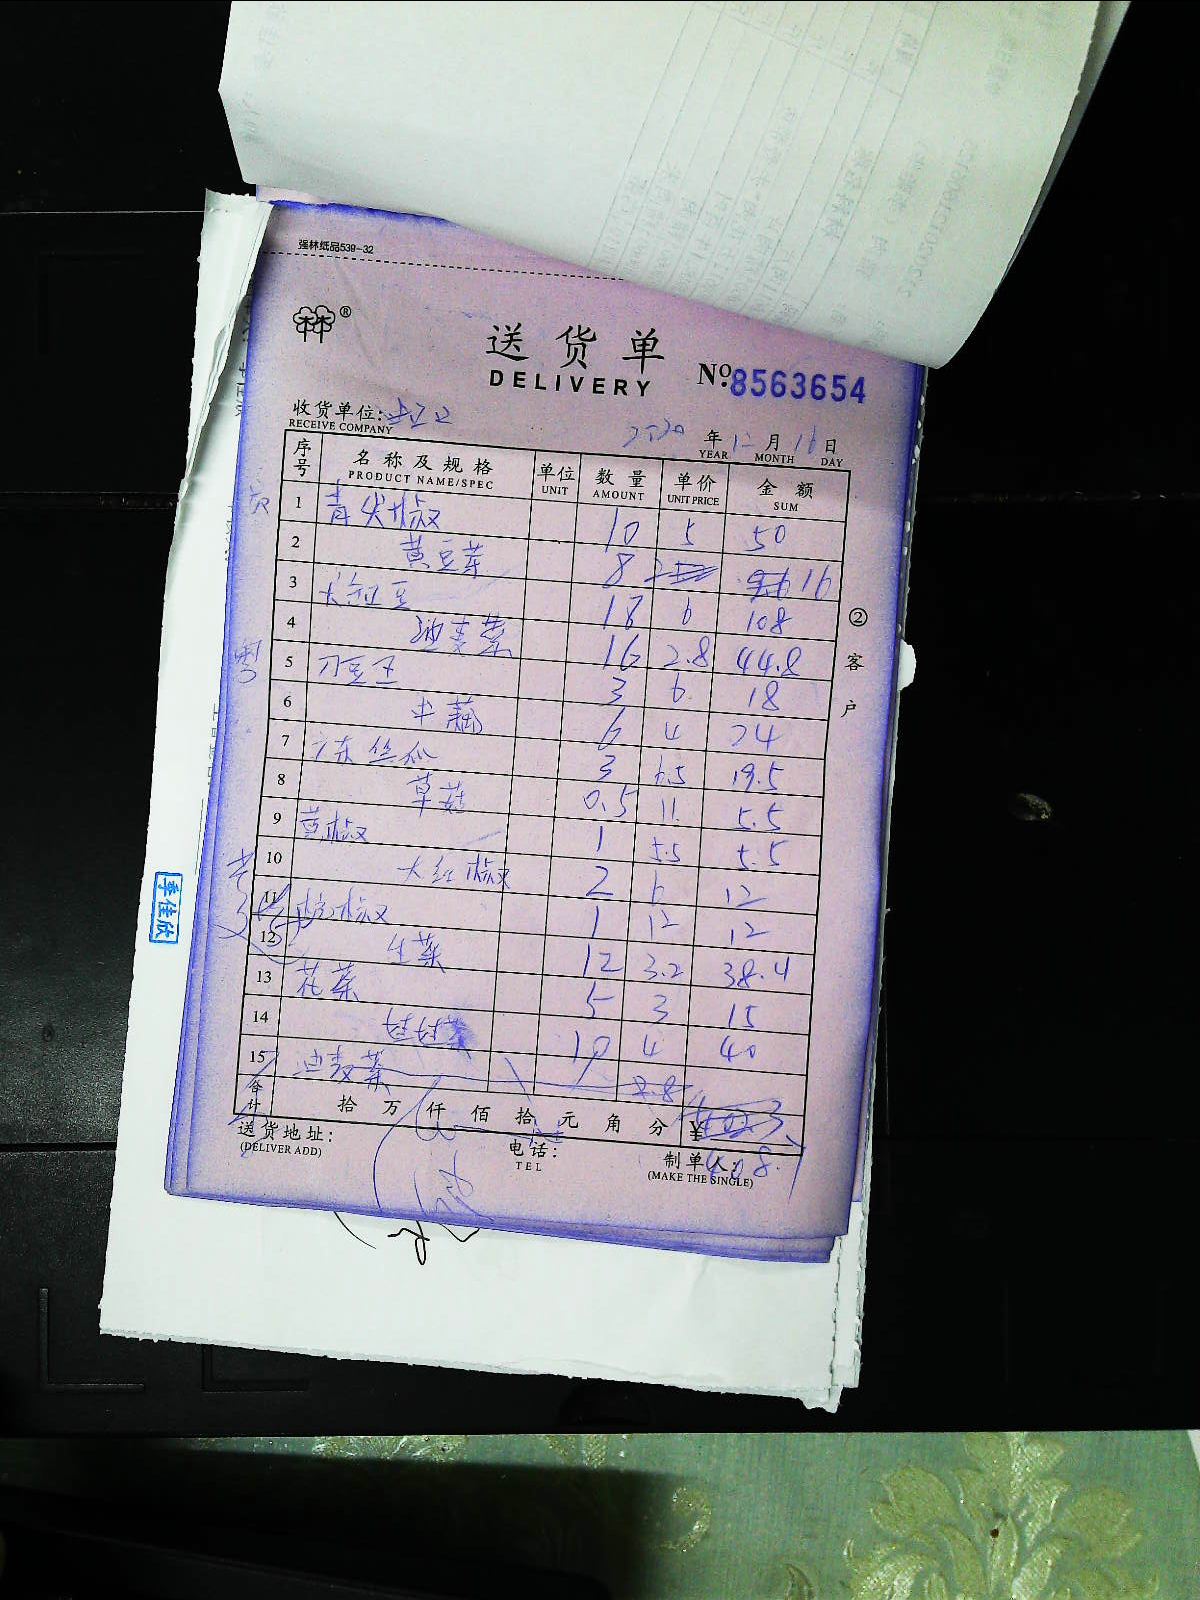 强林纸品539-32
送货单
DELIVERY
№: 8563654
收货单位:
RECEIVE COMPANY
2020 年 12 月 16 日
YEAR MONTH DAY
序号 名称及规格 单位 数量 单价 金额
PRODUCT NAME/SPEC UNIT AMOUNT UNIT PRICE SUM
1 青尖椒 10 5 50
2 黄豆芽 8 16
3 豆 18 6 108
4 油麦菜 16 2.8 44.8
5 刀豆 3 6 18
6 藕 6 4 24
7 广东丝瓜 3 6.5 19.5
8 草菇 0.5 11 5.5
9 黄椒 1 5.5 5.5
10 大红椒 2 6 12
11 杭椒 1 12 12
12 生菜 12 3.2 38.4
13 花菜 5 3 15
14 菜 10 4 40
15 油麦菜 2.8
合计 拾 万 仟 佰 拾 元 角 分 ¥
送货地址:
(DELIVER ADD)
电话:
TEL
制单人:
(MAKE THE SINGLE)
②客户
季佳欣